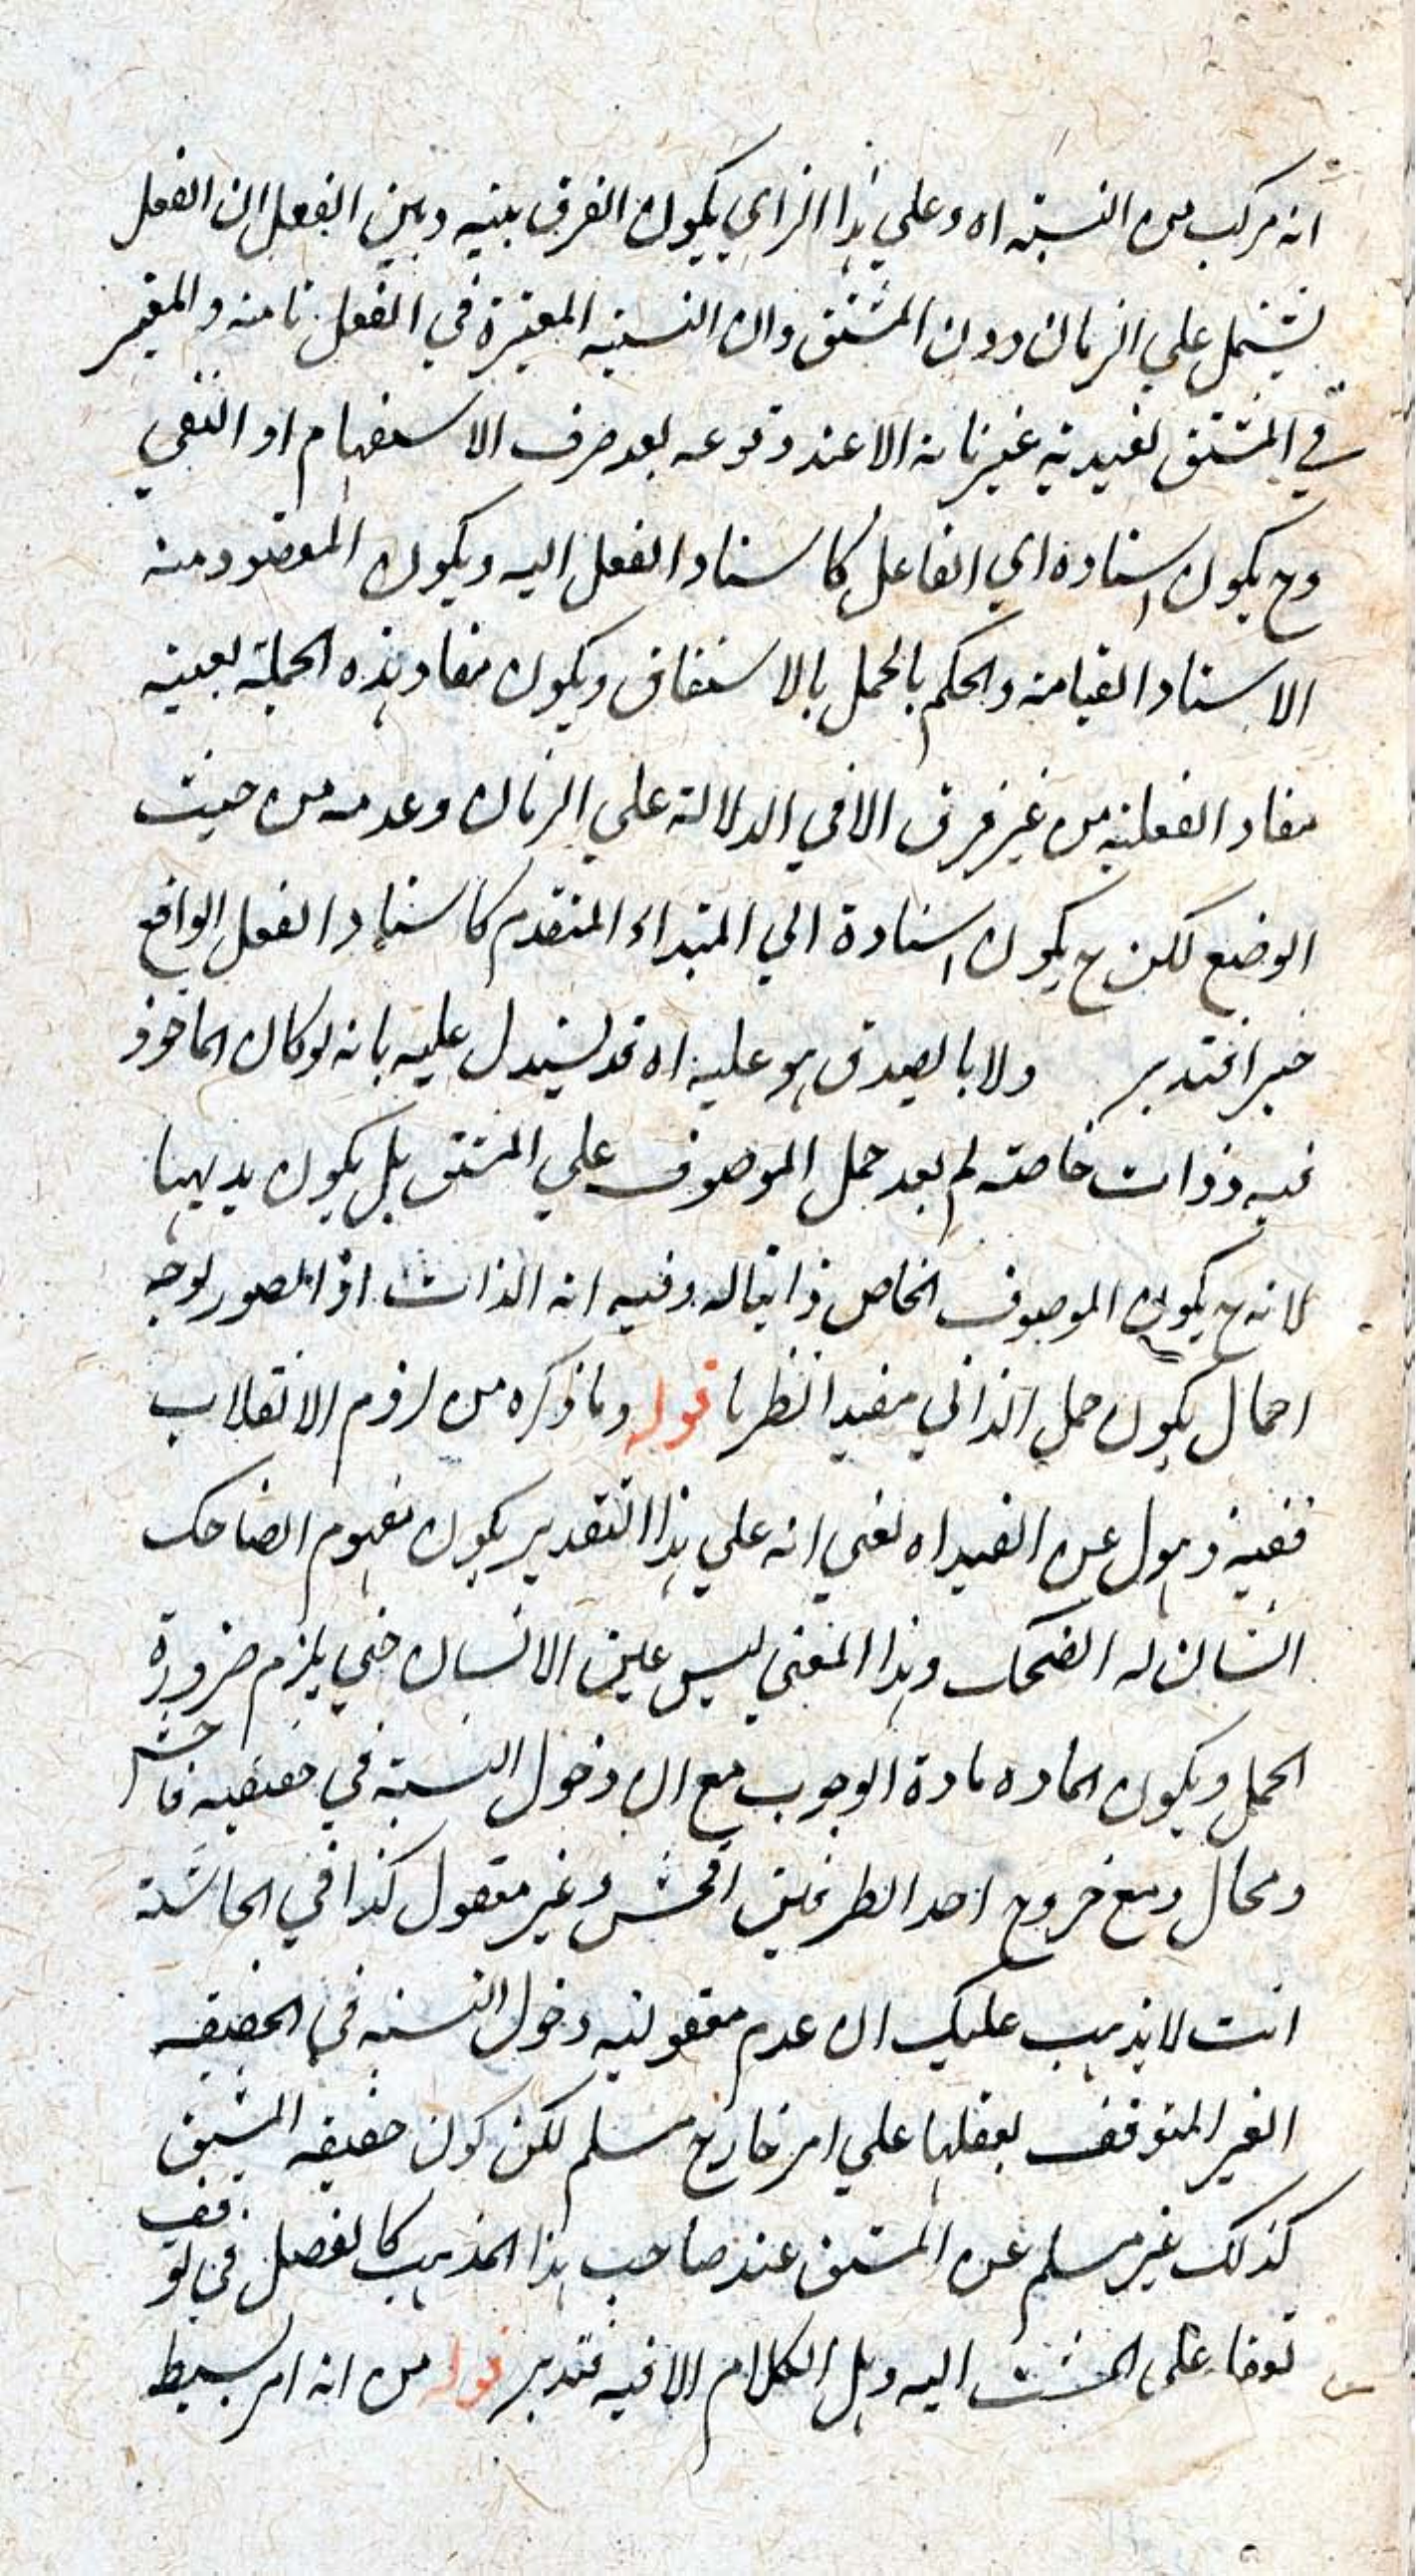 انه مركب من النسبة اه وعلي هذا الراي يكون الفرق بينه وبين الفعل ان الفعل
يشتمل علي الزمان دون المشتق وان النسبة المعتبرة في الفعل تامة والمعتبر
في المشتق تقييدية غير تامة الا عند وقوعه بعد حرف الاستفهام او النفي
وح يكون اسناده الي الفاعل كاسناد الفعل اليه ويكون المقصود منه
الاسناد القيامة والحكم بالحمل بالاشتقاق ويكون مفاد هذه الجملة بعينه
مفاد الفعلية من غير فرق الا في الدلالة علي الزمان وعدمه من حيث
الوضع لكن ح يكون اسناده الي المبتداء المتقدم كاسناد الفعل الواقع
خبرا فتدبر ولا بالصدق هو عليه اه قد يستدل عليه بانه لو كان الماخوذ
فيه ذوات خاصة لم يعد حمل الموصوف علي المشتق بل يكون بديهيا
لانه ح يكون الموصوف الخاص ذاتيا له وفيه ان الذات اذا تصور بوجه
اجمال يكون حمل الذاتي مفيدا نظريا قوله وما ذكره من لزوم الانقلاب
ففيه ذهول عن القيد اه يعني انه علي هذا التقدير يكون مفهوم الضاحك
انسان له الضحك وهذا المعني ليس عين الانسان حتي يلزم ضرورة
الحمل ويكون المادة مادة الوجوب مع ان دخول النسبة في حقيقة فاحش
ومحال ومع خروج احد الطرفين افحش وغير معقول كذا في الحاشية
انت لا يذهب عليك ان عدم معقولية دخول النسبة في الحقيقة
الغير المتوقف تعقلها علي امر خارج مسلم لكن كون حقيقة المشتق
كذلك غير مسلم عن المشتق عند صاحب هذا المذهب كالفصل في توقف
توقفا علي المنتسب اليه وهل الكلام الا فيه فتدبر قوله من انه امر بسيط